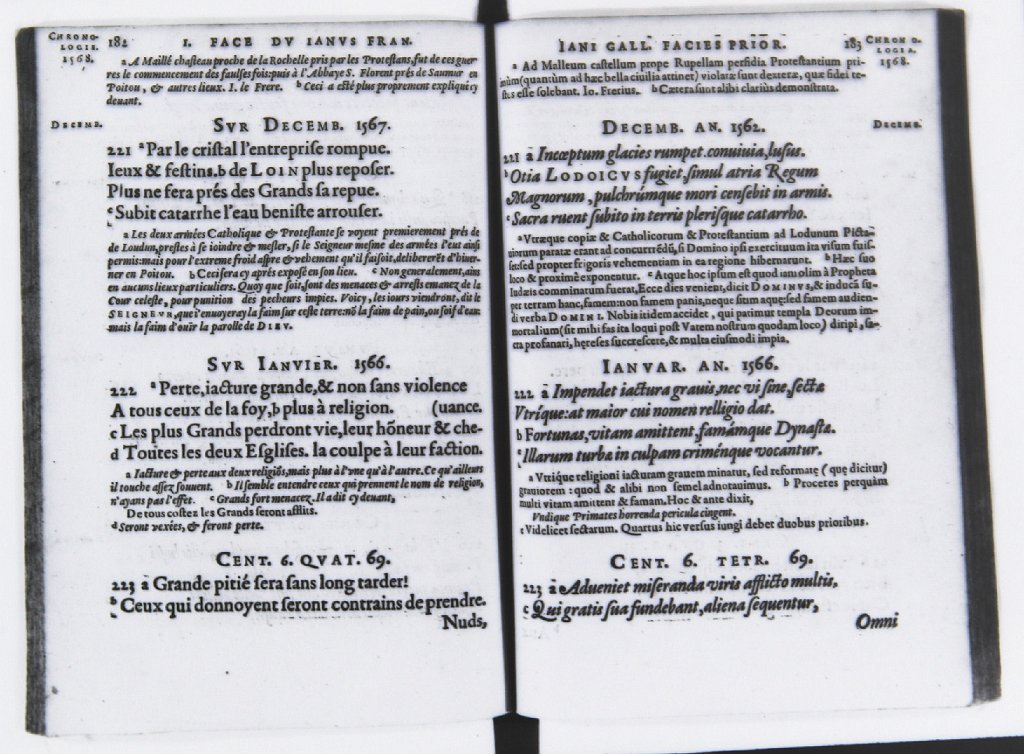 CHRONO-
LOGIE.
1568.
182 I. FACE DV IANVS FRAN.
a A Maillé chasteau proche de la Rochelle pris par les Protestans, fut de ces guer
res le commencement des faulses fois: puis à l'Abbaye S. Florent prés de Saumur en
Poitou, & autres lieux. I. le Frere. b Ceci a esté plus proprement expliqué cy
deuant.
DECEMB.
SVR DECEMB. 1567.
221 a Par le cristal l'entreprise rompue.
Ieux & festins. b de LOIN plus reposer.
Plus ne fera prés des Grands sa repue.
c Subit catarrhe l'eau beniste arrouser.
a Les deux armées Catholique & Protestante se voyent premierement prés de
de Loudun, prestes à se ioindre & mesler, si le Seigneur mesme des armées l'eut ainsi
permis: mais pour l'extreme froid aspre & vehement qu'il faisoit, delibererēt d'hiuer-
ner en Poitou. b Ceci sera cy aprés exposé en son lieu. c Non generalement, ains
en aucuns lieux particuliers. Quoy que soit, sont menaces & arrests emanez de la
Cour celeste, pour punition des pecheurs impies. Voicy, les iours viendront, dit le
SEIGNEVR, que i'enuoyeray la faim sur ceste terre: nō la faim de pain, ou soif d'eau:
mais la faim d'ouïr la parolle de DIEV.
SVR IANVIER. 1566.
222 a Perte, iacture grande, & non sans violence
A tous ceux de la foy, b plus à religion. (uance.
c Les plus Grands perdront vie, leur hōneur & che-
d Toutes les deux Esglises. la coulpe à leur faction.
a Iacture & perte aux deux religiōs, mais plus à l'vne qu'à l'autre. Ce qu'ailleurs
il touche assez souuent. b Il semble entendre ceux qui prennent le nom de religion,
n'ayans pas l'effet. c Grands fort menacez. Il a dit cy deuant,
De tous costez les Grands seront afflits.
d Seront vexées, & feront perte.
CENT. 6. QVAT. 69.
223 a Grande pitié sera sans long tarder!
b Ceux qui donnoyent seront contrains de prendre.
Nuds,
IANI GALL. FACIES PRIOR. 183
CHRONO
LOGIA.
1568.
a Ad Malleum castellum prope Rupellam perfidia Protestantium pri-
mùm (quantùm ad hæc bella ciuilia attinet) violatæ sunt dexteræ, quæ fidei te-
stes esse solebant. Io. Frerius. b Cætera sunt alibi clariùs demonstrata.
DECEMB.
DECEMB. AN. 1562.
221 a Incœptum glacies rumpet. conuiuia, lusus.
b Otia LODOICVS fugiet, simul atria Regum
Magnorum, pulchrúmque mori censebit in armis.
c Sacra ruent subito in terris plerisque catarrho.
a Vtræque copiæ & Catholicorum & Protestantium ad Lodunum Pictā-
uiorum paratæ erant ad concurrēdū, si Domino ipsi exercituum ita visum fuis-
set: sed propter frigoris vehementiam in ea regione hibernarunt. b Hæc suo
loco & proximè exponentur. c Atque hoc ipsum est quod iam olim à Propheta
Iudæis comminatum fuerat, Ecce dies venient, dicit DOMINVS, & inducā su-
per terram hanc, famem: non famem panis, neque sitim aquę: sed famem audien-
di verba DOMINI. Nobis itidem accidet, qui patimur templa Deorum im-
mortalium (sic mihi fas ita loqui post Vatem nostrum quodam loco) diripi, sa-
cra profanari, hereses succrescere, & multa eiusmodi impia.
IANVAR. AN. 1566.
222 a Impendet iactura grauis, nec vi sine, sectæ
Vtríque: at maior cui nomen relligio dat.
b Fortunas, vitam amittent, famámque Dynastæ.
c Illarum turba in culpam criménque vocantur.
a Vtrique religioni iacturam grauem minatur, sed reformatę (que dicitur)
grauiorem: quod & alibi non semel adnotauimus. b Proceres perquàm
multi vitam amittent & famam. Hoc & ante dixit,
Vndique Primates horrenda pericula cingent.
c Videlicet sectarum. Quartus hic versus iungi debet duobus prioribus.
CENT. 6. TETR. 69.
223 a Adueniet miseranda viris afflicto multis,
c Qui gratis sua fundebant, aliena sequentur,
Omni